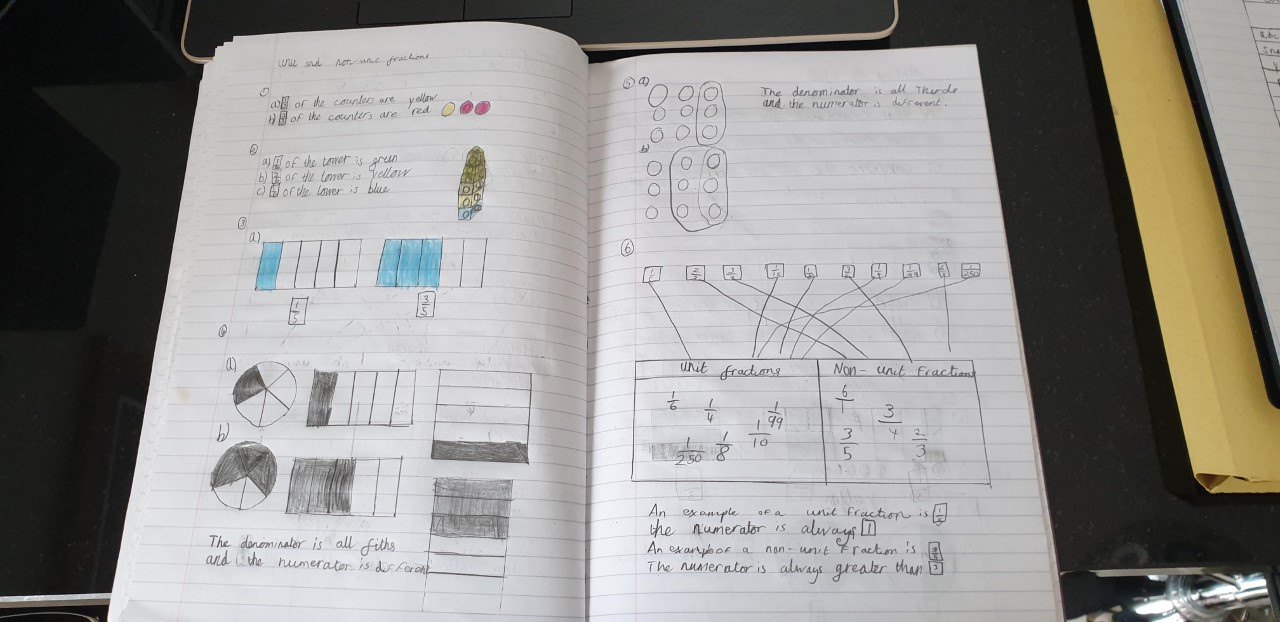 Unit and non-unit fractions
①
a) of the counters are yellow
b) of the counters are red
②
a) of the tower is green
b) of the tower is yellow
c) of the tower is blue
③
a)
1/5 3/5
a)
b)
The denominator is all fiths
and the numerator is different
⑤ a)
The denominator is all Thirds
and the numerator is different.
b)
⑥
Unit fractions
Non-unit Fractions
1/6 1/4 1/99 1/10 1/250 1/8
6/1 3/4 3/5 2/3
An example of a unit Fraction is
the numerator is always 1
An example of a non-unit Fraction is
The numerator is always greater than